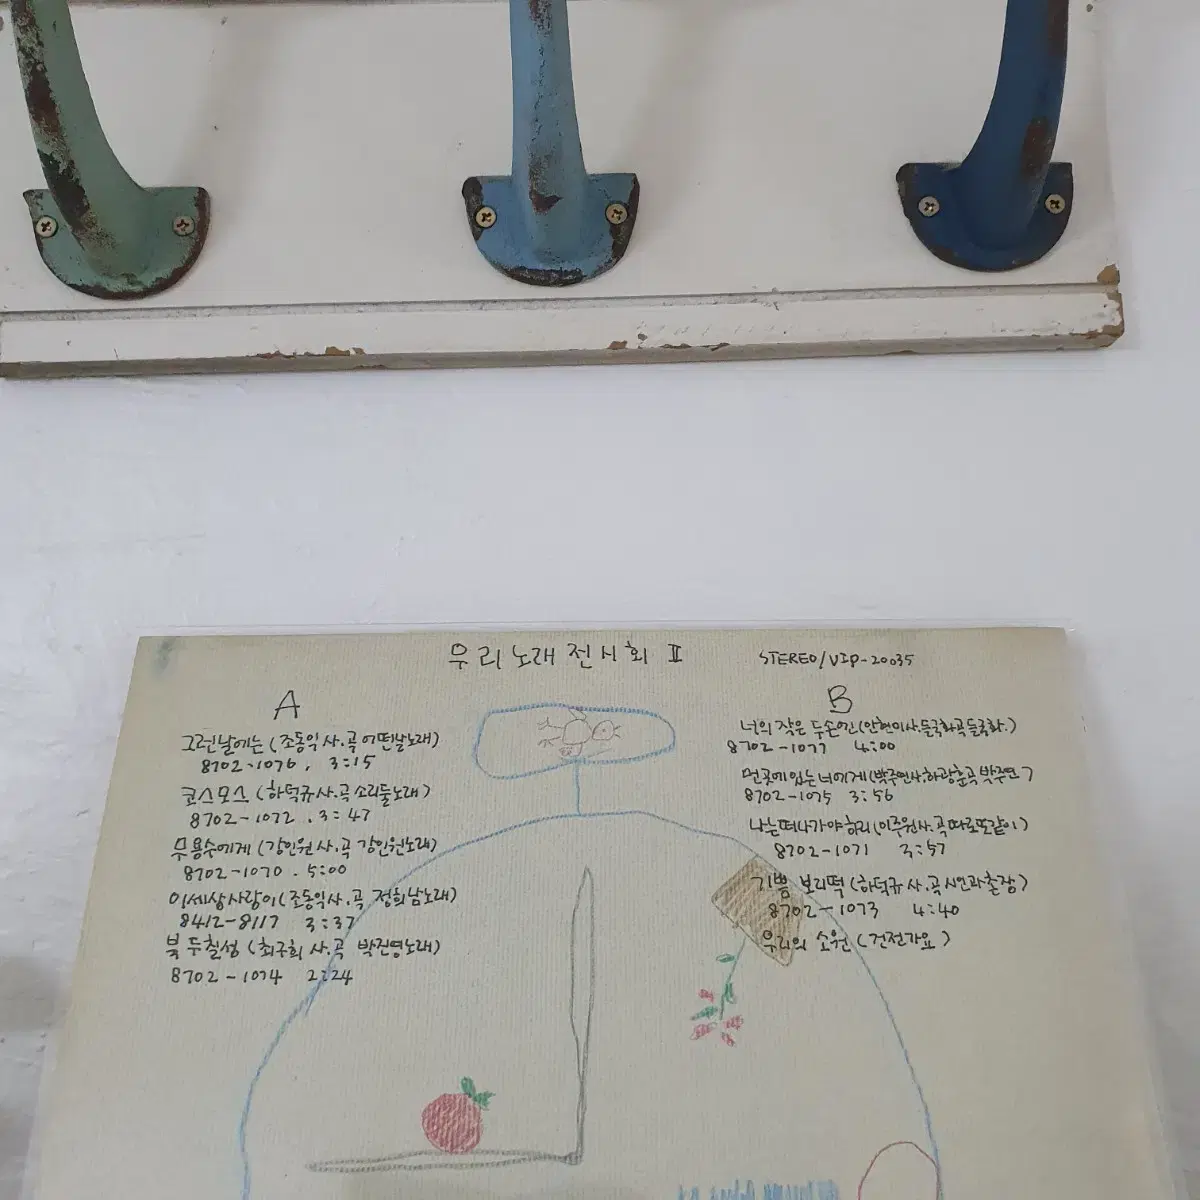 우리노래전시회 Ⅱ
STEREO/VIP-20035
A
그런날에는 (조동익 사.곡 어떤날노래)
8702-1076. 3:15
코스모스 (하덕규 사.곡 소리둘노래)
8702-1072. 3:47
무용수에게 (강인원 사.곡 강인원노래)
8702-1070. 5:00
이세상사랑이 (조동익 사.곡 정희남노래)
8412-8117 3:37
북두칠성 (최구희 사.곡 박진영노래)
8702-1074 2:24
B
너의 작은 두손엔 (안현이사.들국화곡 들국화.)
8702-1077 4:00
먼곳에 있는 너에게 (박주연사.하광훈곡 박주연)
8702-1075 3:56
나는 떠나가야 하리 (이주원 사.곡 따로또같이)
8702-1071 3:57
기쁨 보리떡 (하덕규 사.곡 시인과촌장)
8702-1073 4:40
우리의 소원 (건전가요)